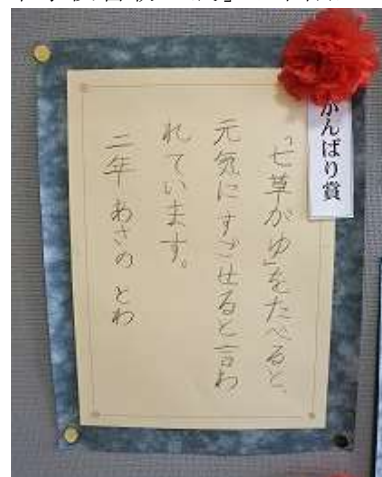 がんばり賞
「七草がゆ」をたべると、
元気にすごせると言わ
れています。
二年 あさの とわ